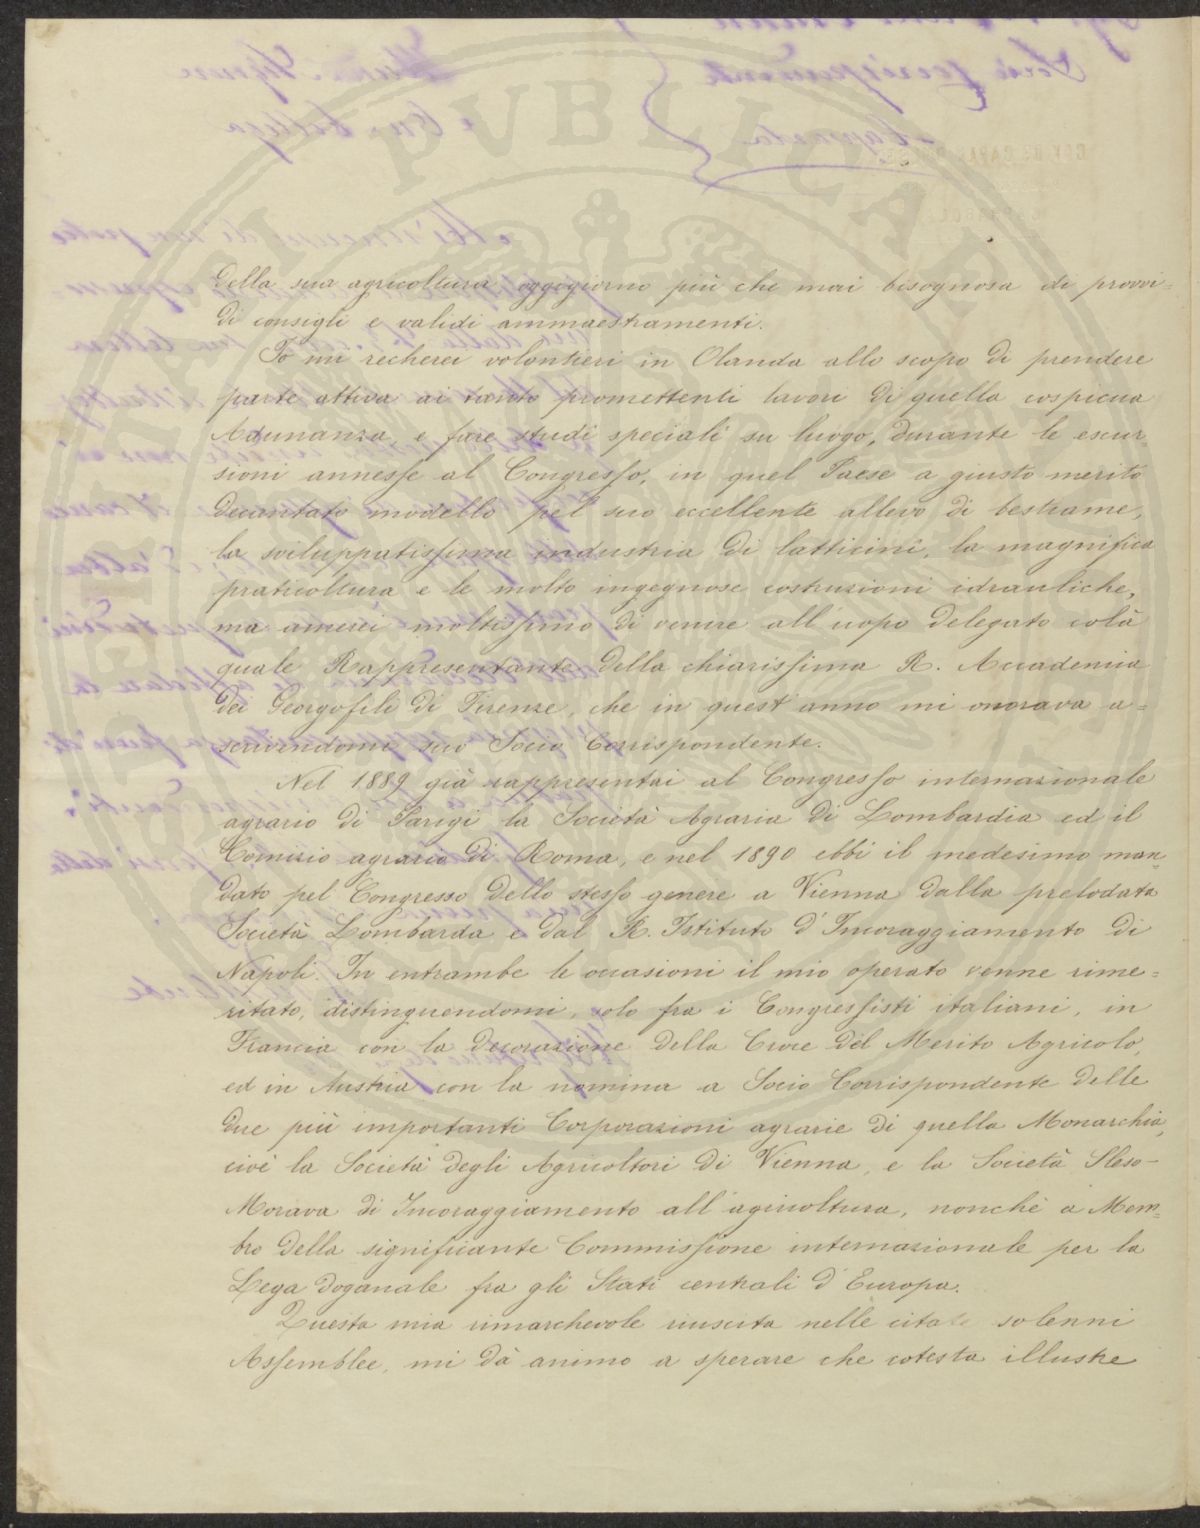 della sua agricoltura oggogiorno più che mai bisognosa di provvi=
di consigli e validi ammaestramenti.
Io mi recherei volontieri in Olanda allo scopo di prendere
parte attiva ai tanto promettenti lavori di quella cospicua
Adunanza, e fare studi speciali su luogo, durante le escur=
sioni annesse al Congresso, in quel Paese a giusto merito
decantato modello pel suo eccellente allevo di bestiame,
la sviluppatissima industria di latticini, la magnifica
praticoltura e le molto ingegnose costruzioni idrauliche,
ma amerei moltissimo di venire all'uopo delegato colà
quale Rappresentante della chiarissima R. Accademia
dei Georgofili di Firenze, che in quest'anno mi onorava a=
scrivendomi suo Socio Corrispondente.
Nel 1889 già rappresentai al Congresso internazionale
agrario di Parigi la Società Agraria di Lombardia ed il
Comizio agrario di Roma, e nel 1890 ebbi il medesimo man=
dato pel Congresso dello stesso genere a Vienna dalla prelodata
Società Lombarda e dal R. Istituto d'Incoraggiamento di
Napoli. In entrambe le occasioni il mio operato venne rime=
ritato, distinguendomi, solo fra i Congressisti italiani, in
Francia con la decorazione della Croce del Merito Agricolo,
ed in Austria con la nomina a Socio Corrispondente delle
due più importanti Corporazioni agrarie di quella Monarchia,
cioè la Società degli Agricoltori di Vienna, e la Società Sleso-
Morava di Incoraggiamento all'agricoltura, nonchè a Mem=
bro della significante Commissione internazionale per la
Lega doganale fra gli Stati centrali d'Europa.
Questa mia rimarchevole riuscita nelle citate solenni
Assemblee, mi dà animo a sperare che cotesta illustre